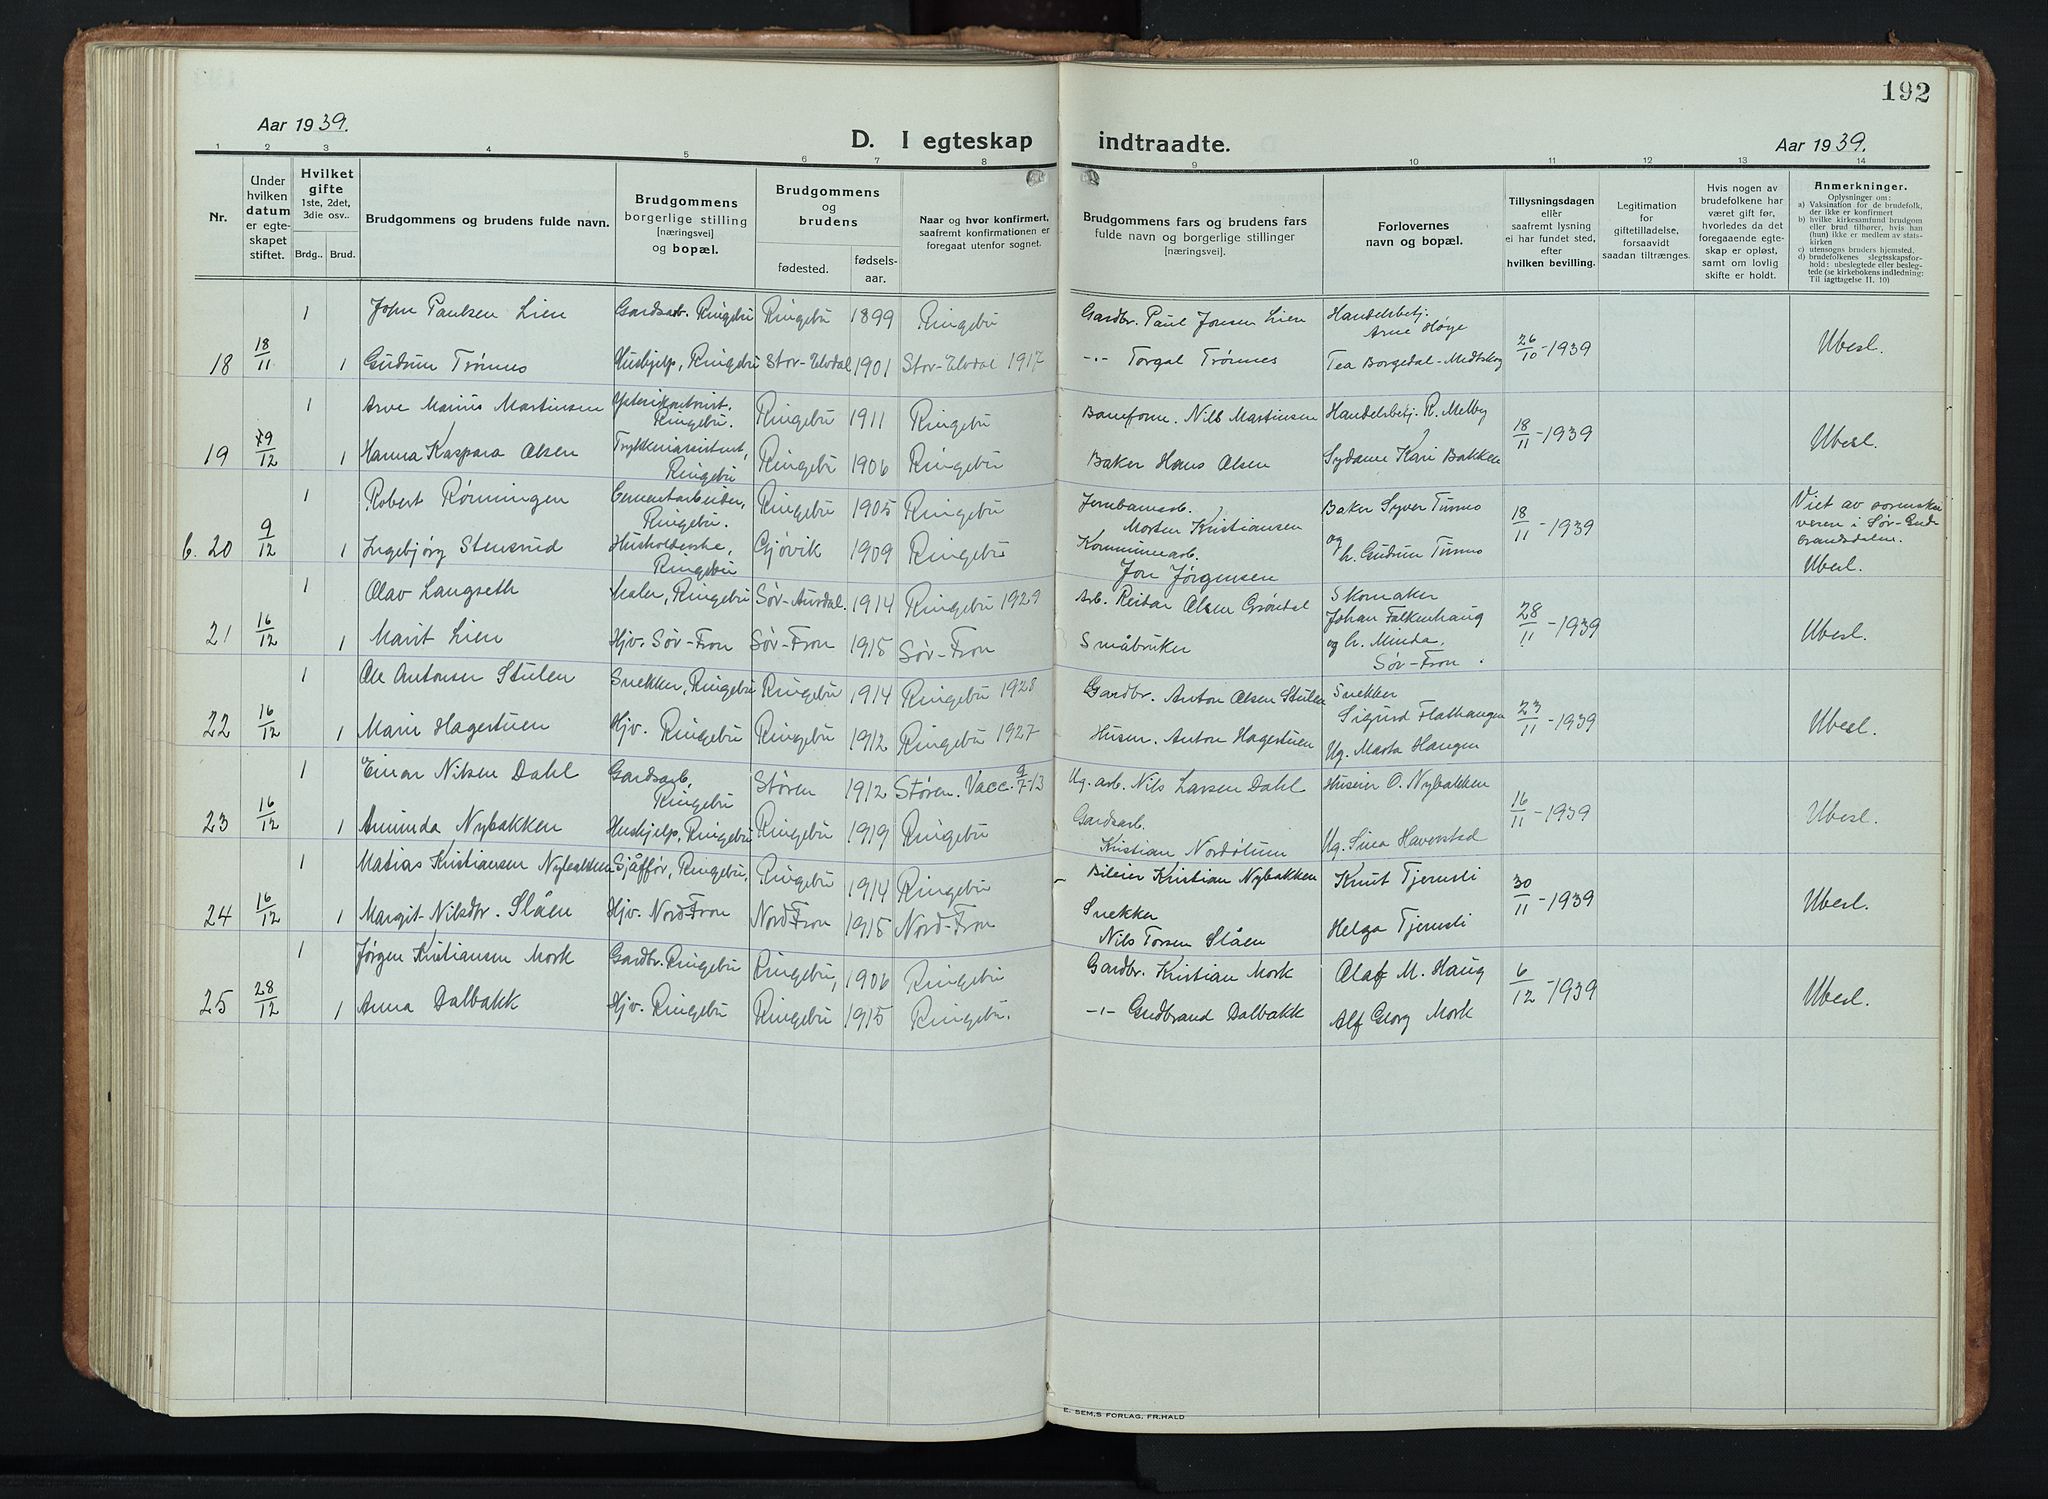 192
Aar 1939.
D. I egteskap indtraadte.
Aar 1939.
1 2 3 4 5 6 7 8 9 10 11 12 13 14
Nr.
Under hvilken datum er egteskapet stiftet.
Hvilket gifte 1ste, 2det, 3die osv..
Brdg.. Brud.
Brudgommens og brudens fulde navn.
Brudgommens borgerlige stilling [næringsvei] og bopæl.
Brudgommens og brudens
fødested.
fødsels-aar.
Naar og hvor konfirmert, saafremt konfirmationen er foregaat utenfor sognet.
Brudgommens fars og brudens fars fulde navn og borgerlige stillinger [næringsvei].
Forlovernes navn og bopæl.
Tillysningsdagen ellèr saafremt lysning ei har fundet sted, efter hvilken bevilling.
Legitimation for giftetilladelse, forsaavidt saadan tiltrænges.
Hvis nogen av brudefolkene har været gift før, hvorledes da det foregaaende egteskap er opløst, samt om lovlig skifte er holdt.
Anmerkninger.
Oplysninger om:
a) Vaksination for de brudefolk, der ikke er konfirmert
b) hvilke kirkesamfund brudgom eller brud tilhører, hvis han (hun) ikke er medlem av statskirken
c) utensogns bruders hjemsted.
d) brudefolkenes slegtsskapsforhold: ubeslegtede eller beslegtede (se kirkebokens indledning: Til iagttagelse II. 10)
1 John Paulsen Lien Gardsarb. Ringebu Ringebu 1899 Ringebu Gardbr. Paul Jonsen Lien Handelsbetj. Arne Høye
18 18/11 1 Gudrun Trønnes Hushjelp, Ringebu Stor-Elvdal 1901 Stor-Elvdal 1917 -"- Torgal Trønnes Tea Borgedal-Medtskog 26/10-1939 Ubesl.
1 Arve Marius Martinsen Ringebu. Ringebu 1911 Ringebu Nils Martinsen Handelsbetj. R. Melby
19 9/12 1 Hanna Kaspara Olsen Ringebu Ringebu 1906 Ringebu Baker Hans Olsen Sydame Kari Bakken 18/11-1939 Ubesl.
1 Robert Rønningen Cementarbeider, Ringebu. Ringebu 1905 Ringebu Jernbanearb. Morten Kristiansen Baker Syver Turmo
Viet av sorenskriveren i Sør-Gudbrandsdalen.
b. 20 9/12 1 Ingebjørg Stensrud Husholderske, Ringebu Gjøvik 1909 Ringebu Kommunearb. Jon Jørgensen og h. Gudrun Turmo 18/11-1939 Ubesl.
1 Olav Langseth Maler, Ringebu Sør-Aurdal. 1914 Ringebu 1929 Arb. Reidar Olsen Grøndal Skomaker Johan Falkenhaug
21 16/12 1 Marit Lien Hjv. Sør-Fron Sør-Fron 1915 Sør-Fron Småbruker og h. Minda, Sør-Fron. 28/11-1939 Ubesl.
1 Ole Antonsen Stulen Snekker, Ringebu Ringebu 1914 Ringebu 1928 Gardbr. Anton Olsen Stulen Snekker Sigurd Flathaugen
22 16/12 1 Marie Hagestuen Hjv. Ringebu Ringebu 1912 Ringebu 1927 Husm. Anton Hagestuen Ug. Marta Haugen 23/11-1939 Ubesl.
1 Einar Nilsen Dahl Gardsarb. Ringebu Støren 1912 Støren. Vacc. 9/7-13 Ug. arb. Nils Larsen Dahl Huseier O. Nybakken
23 16/12 1 Aminda Nybakken Hushjelp, Ringebu Ringebu 1919 Ringebu Gardsarb. Kristian Nordølum Ug. Sina Haverstad 16/11-1939 Ubesl.
1 Matias Kristiansen Nybakken Sjåffør, Ringebu, Ringebu 1914 Ringebu - Bileier Kristian Nybakken Knut Tjernsli
24 16/12 1 Margit Nilsdtr. Slåen Hjv. Nord-Fron Nord-Fron 1915 Nord-Fron Snekker Nils Torsen Slåen Helga Tjernsli 30/11-1939 Ubesl.
1 Jørgen Kristiansen Mork Gardbr. Ringebu Ringebu, 1906 Ringebu Gardbr. Kristian Mork Olaf M. Haug
25 28/12 1 Anna Dalbakk Hjv. Ringebu Ringebu 1915 Ringebu. -"- Gudbrand Dalbakk Alf Georg Mork 6/12-1939 Ubesl.
E. SEM,S FORLAG, FR.HALD